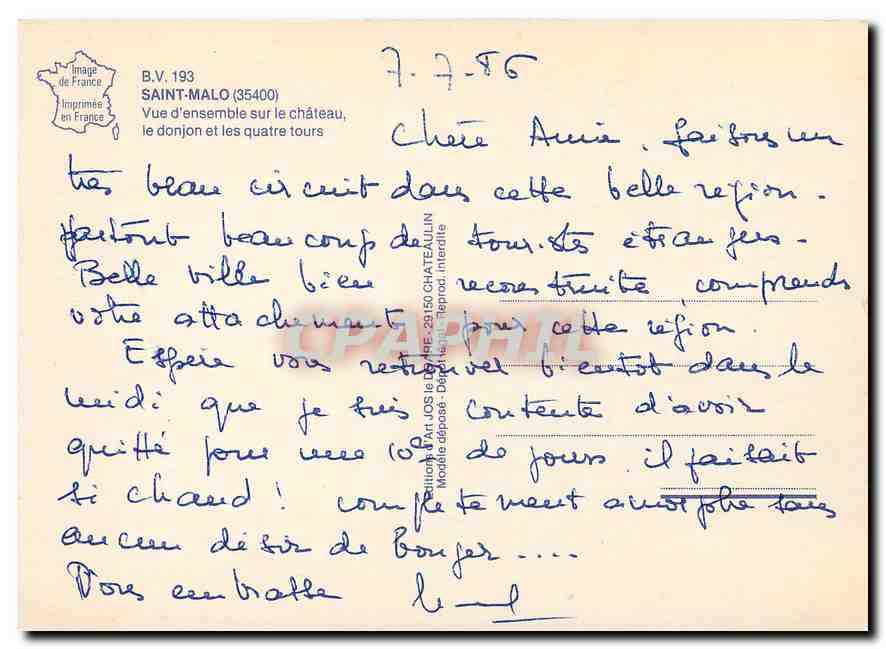 Image
de France
Imprimée
en France
B.V. 193
SAINT-MALO (35400)
Vue d'ensemble sur le château,
le donjon et les quatre tours
7.7.86
Chère Amie, faisons un
très beau circuit dans cette belle région.
partout beaucoup de touristes étrangers.
Belle ville bien reconstruite, comprends
votre attachement pour cette région.
Espère vous retrouver bientot dans le
midi que je suis contente d'avoir
quitté pour une 10e de jours. il faisait
si chaud! completement amorphe sans
aucun désir de bouger....
Vous embrasse
Editions d'Art JOS le DOARE - 29150 CHATEAULIN
Modèle déposé - Dépôt légal - Reprod. interdite
CPAPHIL